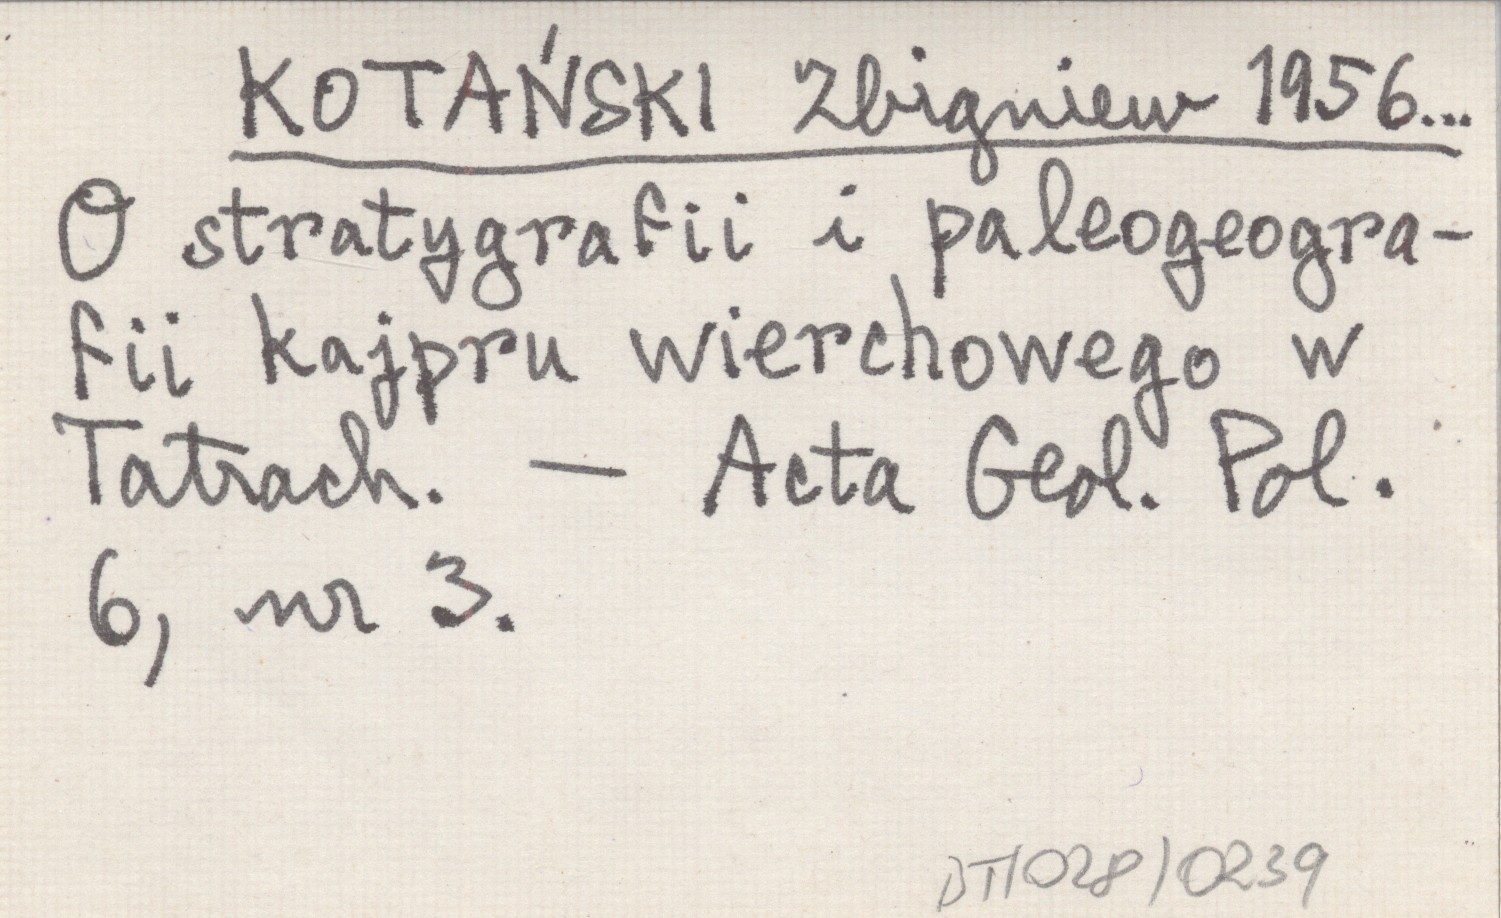 KOTAŃSKI Zbigniew 1956...
O stratygrafii i paleogeogra-
fii kajpru wierchowego w
Tatrach. — Acta Geol. Pol.
6, nr 3.
DT/028/0239